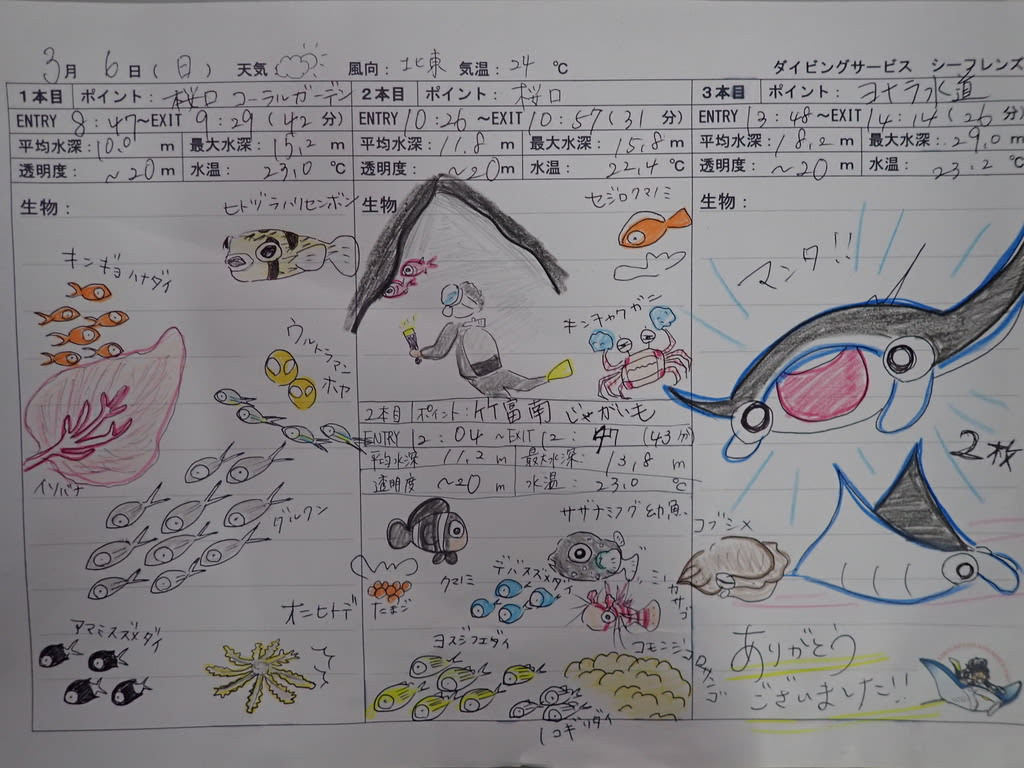 3月 6日(日) 天気 風向: 北東 気温: 24 ℃
ダイビングサービス シーフレンズ
1本目 ポイント: 桜口 コーラルガーデン
ENTRY 8:47~EXIT 9:29(42分)
平均水深: 10.0 m 最大水深: 15.2 m
透明度: ~20 m 水温: 23.0 ℃
生物:
ヒトヅラハリセンボン
キンギョハナダイ
ウルトラマン
ホヤ
イソバナ
グルクン
オニヒトデ
アマミスズメダイ
2本目 ポイント: 桜口
ENTRY 10:26~EXIT 10:57(31分)
平均水深: 11.8 m 最大水深: 15.8 m
透明度: ~20 m 水温: 22.4 ℃
生物
セジロクマノミ
キンチャクガニ
2本目 ポイント: 竹富南 じゃがいも
ENTRY 12:04~EXIT 12:47(43分)
平均水深 11.2 m 最大水深: 13.8 m
透明度 ~20 m 水温: 23.0 ℃
サザナミフグ幼魚
クマノミ
たまご
デバスズメダイ
ミノカサゴ
ヨスジフエダイ
コモンシコロサンゴ
ノコギリダイ
3本目 ポイント: ヨナラ水道
ENTRY 13:48~EXIT 14:14(26分)
平均水深: 18.2 m 最大水深: 29.0 m
透明度: ~20 m 水温: 23.2 ℃
生物:
マンタ!!
2枚
コブシメ
ありがとう
ございました!!